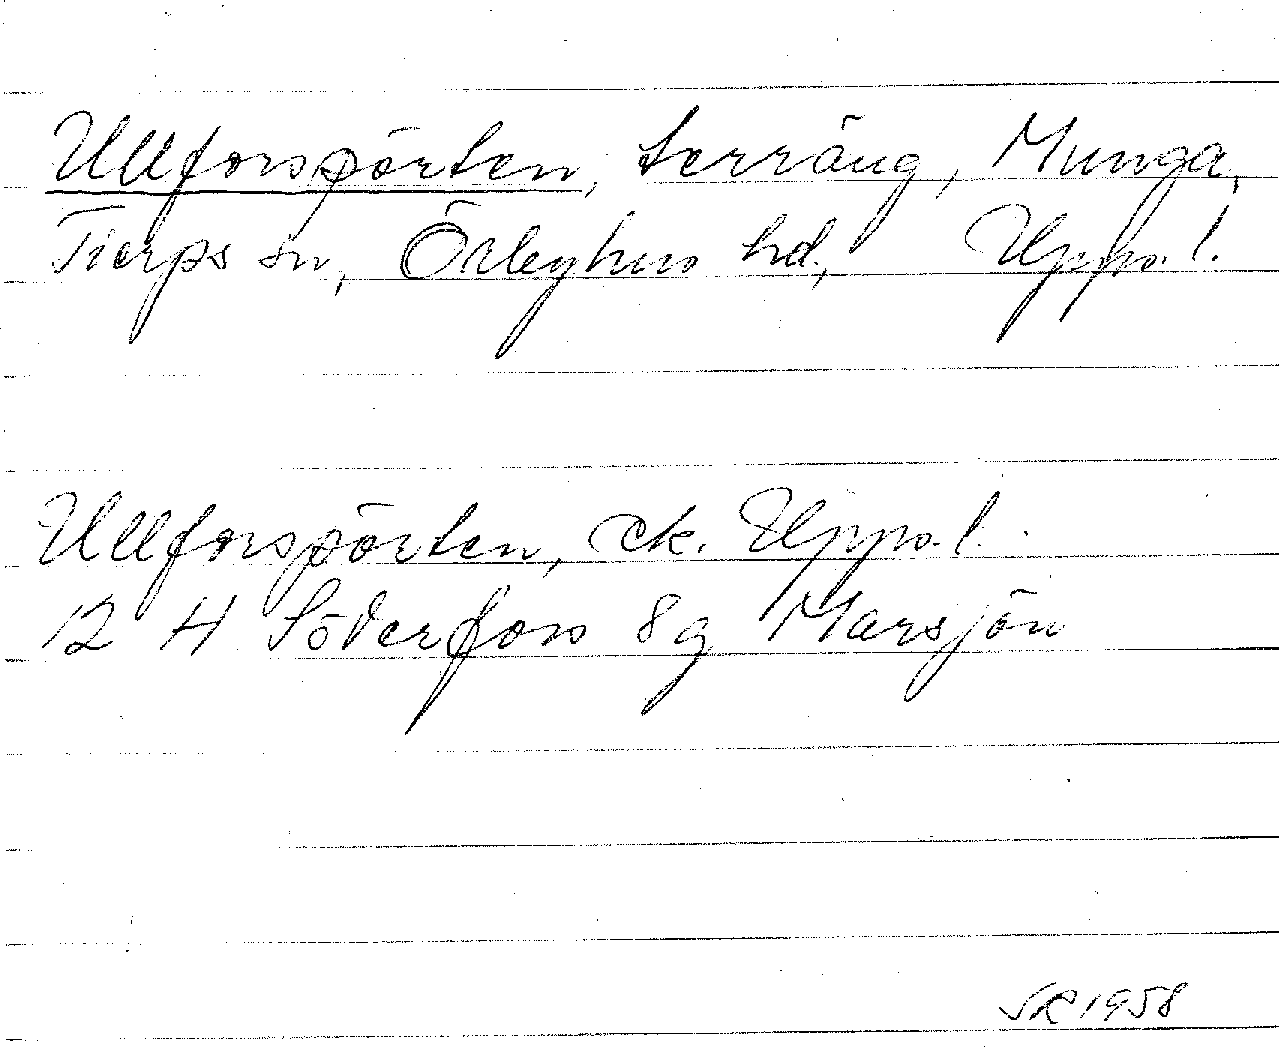 Ullforspörten, terräng, Munga,
Tierps sn, Örbyhus hd, Upps. l.
Ullforspörten, ek. Upps. l.
12 H Söderfors 8g Marsjön
SR 1958